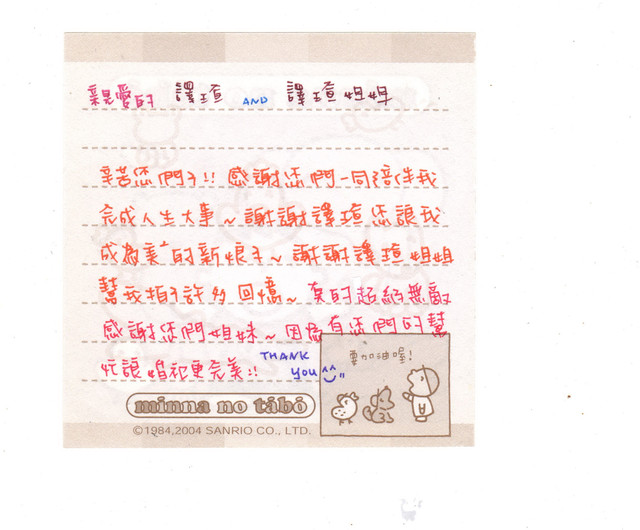 親愛的 譯瑄 AND 譯瑄姐姐
辛苦您們了!! 感謝您們一同陪伴我
完成人生大事~謝謝譯瑄您讓我
成為美的新娘子~謝謝譯瑄姐姐
幫我拍了許多回憶~真的超級無敵
感謝您們姐妹~因為有您們的幫
忙讓婚禮更完美!! THANK YOU
要加油喔!
minna no tábó
©1984,2004 SANRIO CO., LTD.